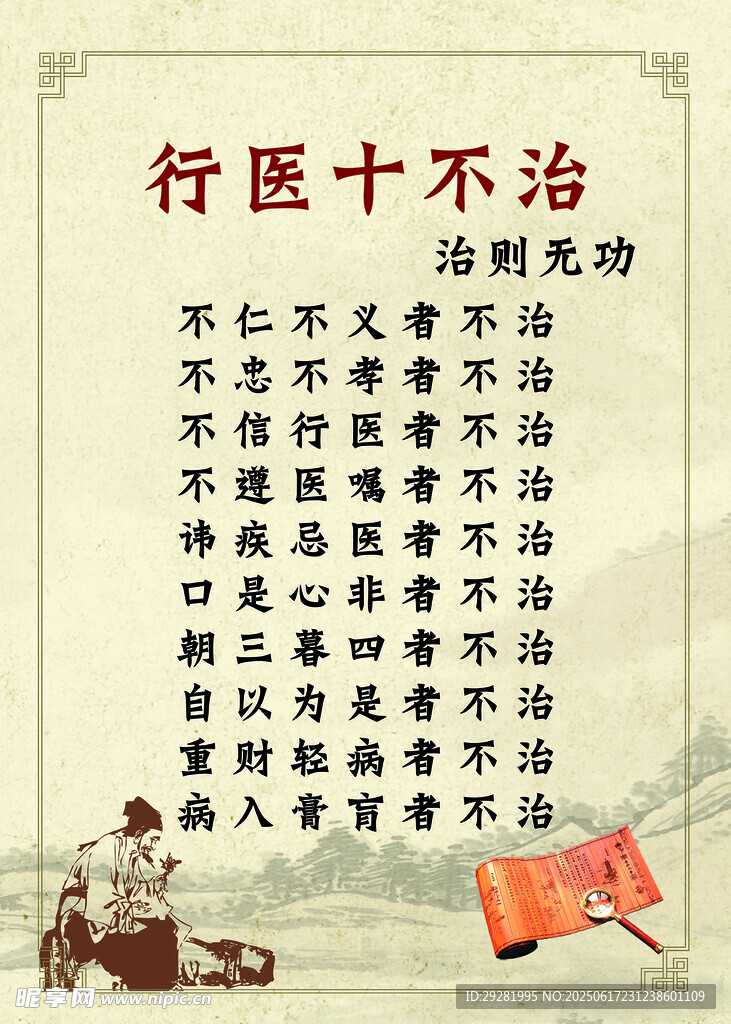 行医十不治
治则无功
不仁不义者不治
不忠不孝者不治
不信行医者不治
不遵医嘱者不治
讳疾忌医者不治
口是心非者不治
朝三暮四者不治
自以为是者不治
重财轻病者不治
病入膏肓者不治
昵享网 www.nipic.cn
ID:29281995 NO:20250617231238601109